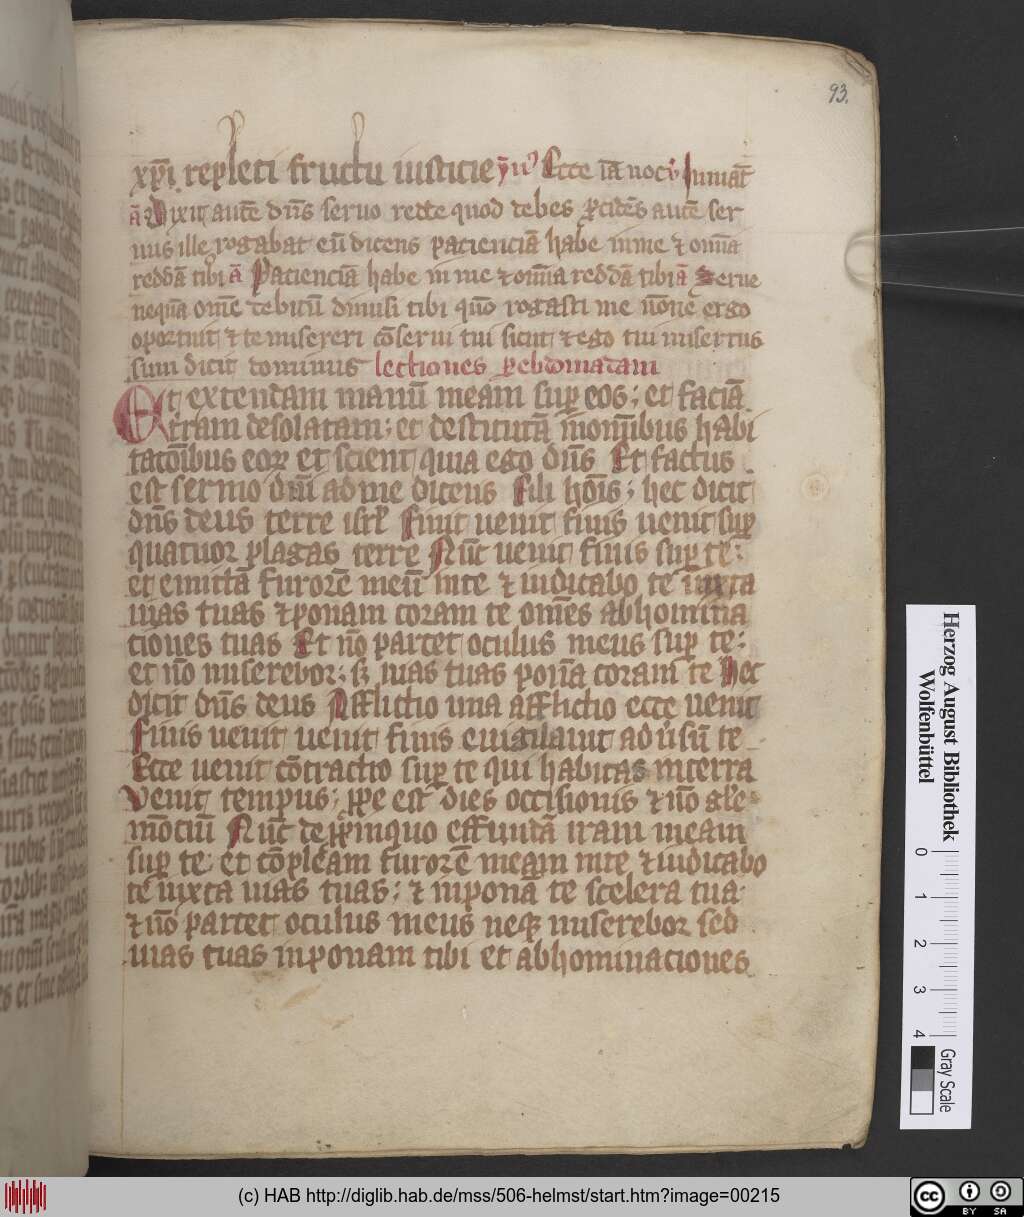 93.
xp̄i repleti fructu iusticie ym̄⁹ Ecce iā noct᷒ iiniāt᷒
ā Dixit autē dn̄s seruo redde quod debes ꝓcidēs autē ser
uus ille rogabat eū dicens pacienciā habe in me ⁊ om̄ia
reddā tibi ā Pacienciā habe in me ⁊ om̄ia reddā tibi ā Serue
nequā om̄e debitū dimisi tibi qm̄o rogasti me nōne ergo
oportuit ⁊ te misereri cōserui tui sicut ⁊ ego tui misertus
sum dicit dominus lectiones ꝑ ebdomadam
Et extendam manū meam suꝑ eos; et faciā
terram desolatam; et destitutā in om̄ibus habi
tatōibus eoꝝ et scient quia ego dn̄s Et factus
est sermo dn̄i ad me dicens Fili hoīs; hec dicit
dn̄s deus terre isrl̄ Finit uenit finis uenit suꝑ
quatuor plagas terre Nūc uenit finis suꝑ te:
et emittā furorē meū in te ⁊ iudicabo te iuxta
uias tuas ⁊ ponam coram te om̄es abhomina
tiones tuas Et nō parcet oculus meus suꝑ te;
et nō miserebor; sꝫ uias tuas ponā coram te Hec
dicit dn̄s deus Afflictio una afflictio ecce uenit
Finis uenit uenit finis euigilauit aduˀsū te
Ecce uenit cōtractio suꝑ te qui habitas in terra
Venit tempus; ꝓpe est dies occisionis ⁊ nō glˀe
mōciū Nūc de ꝓpinquo effundā iram meam
suꝑ te et cōpleam furorē meam in te ⁊ iudicabo
te iuxta uias tuas; ⁊ inponā te scelera tua.
⁊ nō parcet oculus meus neqꝫ miserebor sed
uias tuas inponam tibi et abhominaciones
Herzog August Bibliothek
Wolfenbüttel
0 1 2 3 4
Gray Scale
(c) HAB http://diglib.hab.de/mss/506-helmst/start.htm?image=00215
cc BY SA